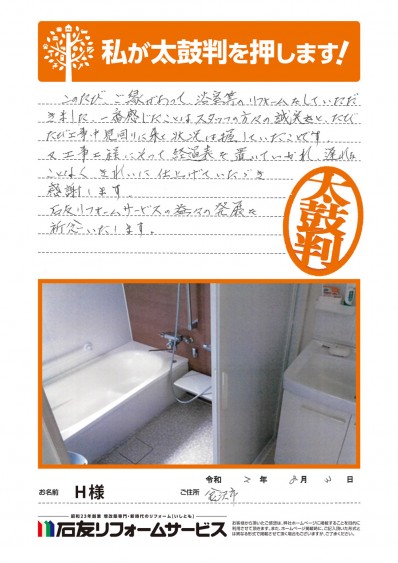 私が太鼓判を押します!
このたび、ご縁があって、浴室等のリフォームをしていただ
きました、一番感じたことはスタッフの方々の誠実さと、たび
たび工事中見回りに来て状況は握していたことです。
又工事工程にそって経過表を置いていかれ、遅れる
ことなく きれいに 仕上げていただき
感謝します。
石友リフォームサービスの益々の発展を
祈念いたします。
太鼓判
令和 2 年 月 日
お名前 H様 ご住所 金沢市
昭和23年創業 増改築専門・新時代のリフォーム〈いしとも〉
石友リフォームサービス
お客様から頂いたご感想は、弊社ホームページに掲載することを目的に
利用させて頂きます。また、ホームページ掲載時に、ご記入頂いた形式と
は異なる形式で掲載させて頂く場合もございますが、ご了承ください。